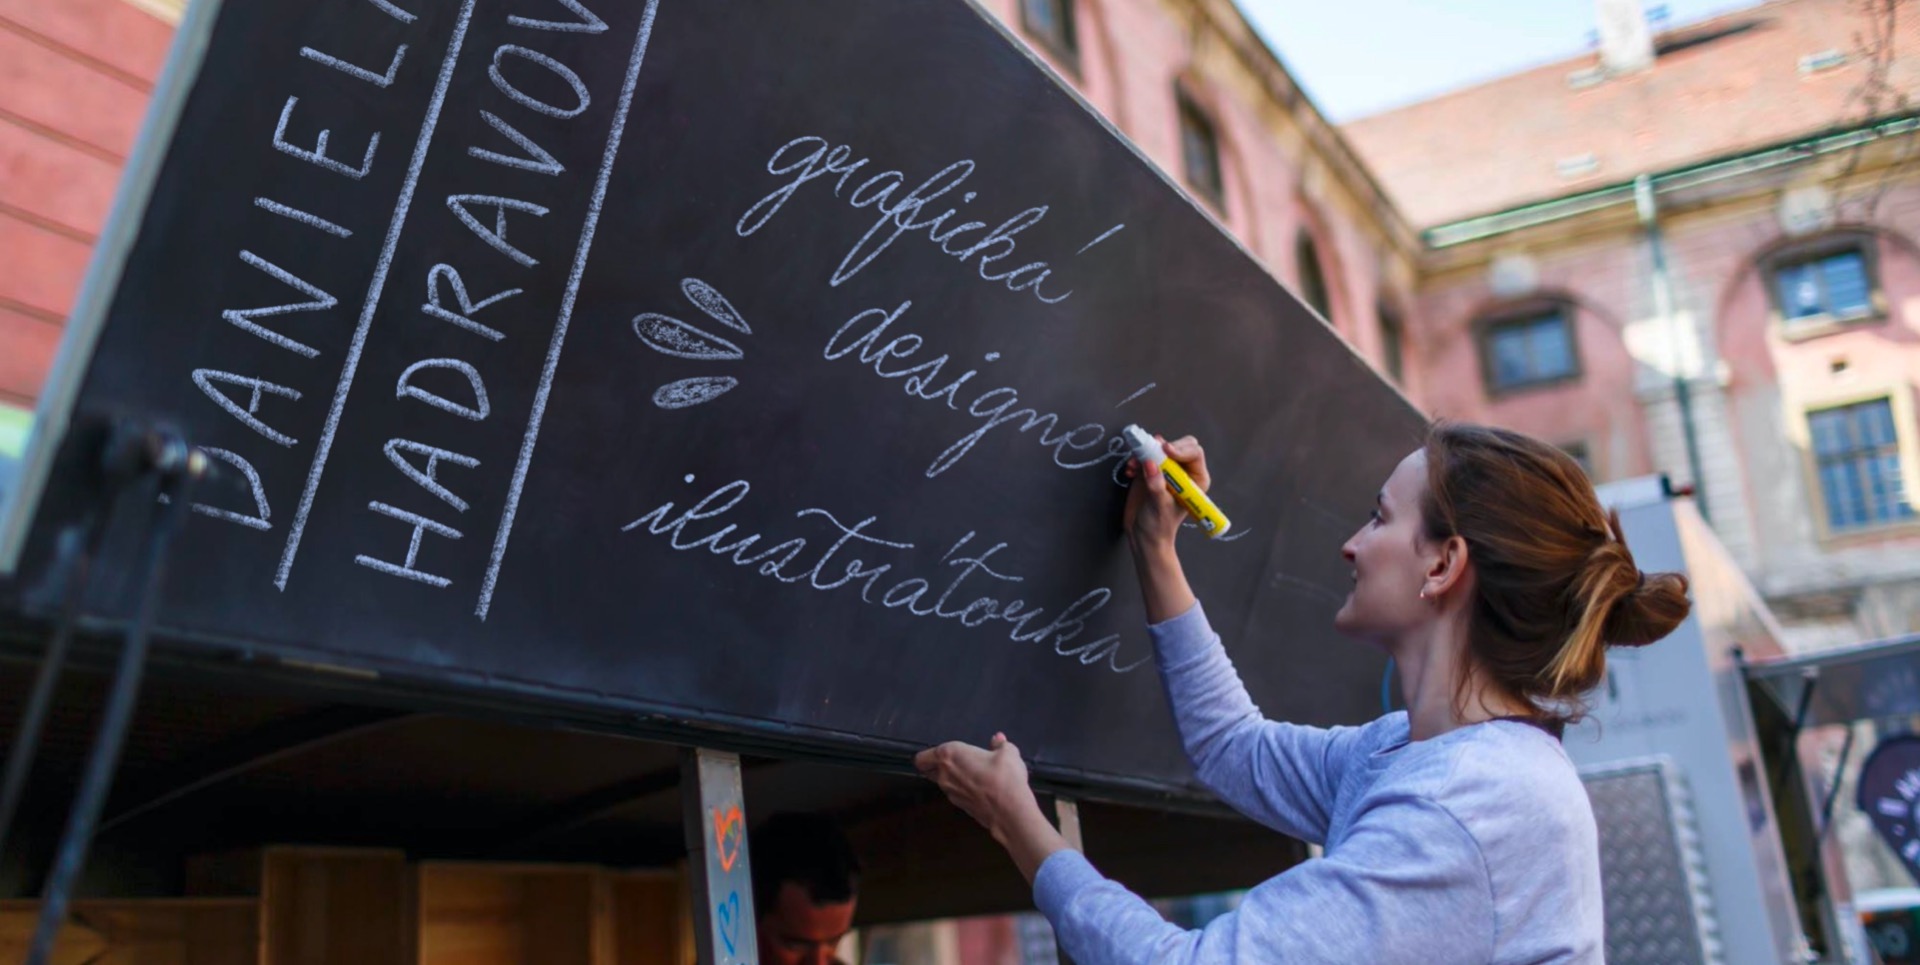 DANIEL
HADRAVOV
grafická
designér
ilustrátorka